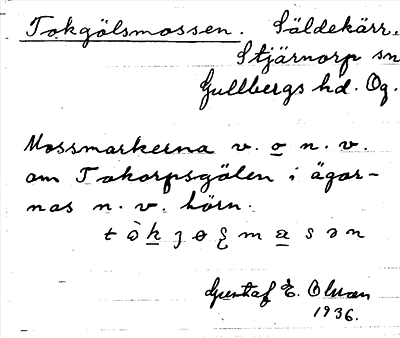 Tokgölsmossen. Säldekärr.
Stjärnorp sn
Gullbergs hd. Ög.
Mossmarkerna v. o n. v.
om Tokorpsgölen i ägor-
nas n. v. hörn.
Gustaf E. Olsson
1936.